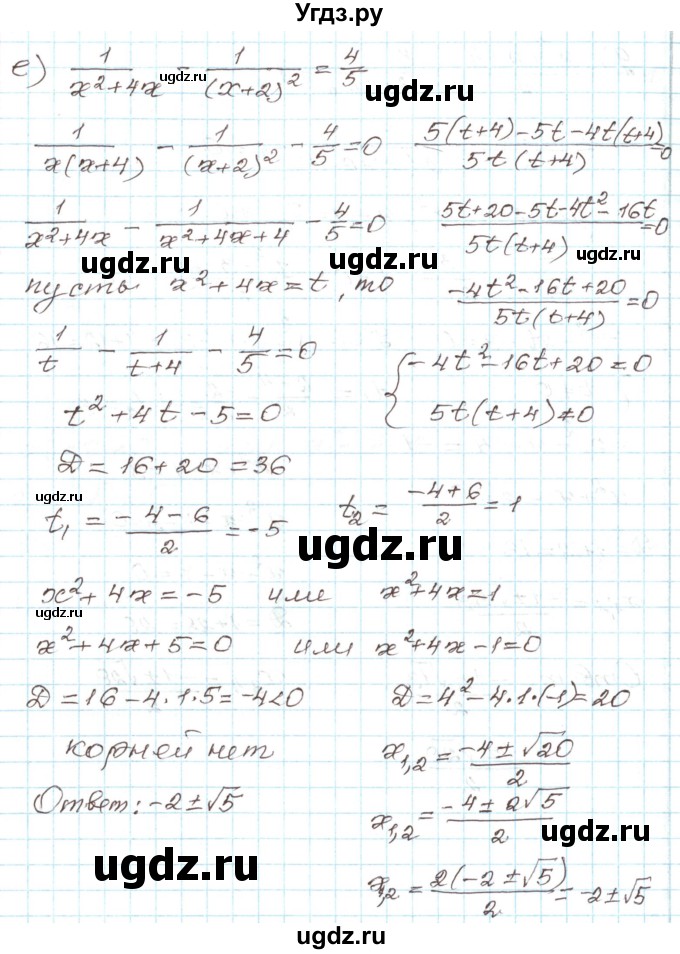 Угдз.ру
е) 1/(x²+4x) - 1/(x+2)² = 4/5
ugdz.ru
ugdz.ru
1/(x(x+4)) - 1/(x+2)² - 4/5 = 0
(5(t+4)-5t-4t(t+4))/(5t(t+4)) = 0
1/(x²+4x) - 1/(x²+4x+4) - 4/5 = 0
(5t+20-5t-4t²-16t)/(5t(t+4)) = 0
ugdz.ru
ugdz.ru
пусть x²+4x=t, то
(-4t²-16t+20)/(5t(t+4)) = 0
1/t - 1/(t+4) - 4/5 = 0
{ -4t²-16t+20=0
5t(t+4)≠0
t²+4t-5=0
D=16+20=36
ugdz.ru
t₁ = (-4-6)/2 = -5
t₂ = (-4+6)/2 = 1
ugdz.ru
x²+4x=-5 или x²+4x=1
ugdz.ru
x²+4x+5=0 или x²+4x-1=0
D=16-4·1·5=-4<0
D=4²-4·1·(-1)=20
корней нет
x₁,₂ = (-4±√20)/2
Ответ: -2±√5
x₁,₂ = (-4±2√5)/2
ugdz.ru
ugdz.ru
x₁,₂ = (2(-2±√5))/2 = -2±√5
ugdz.ru